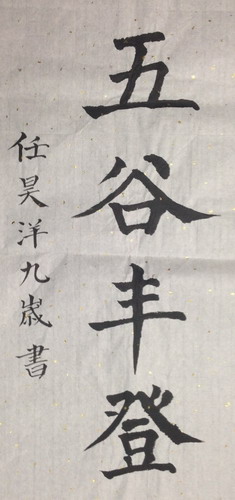 五谷丰登
任昊洋九歲書